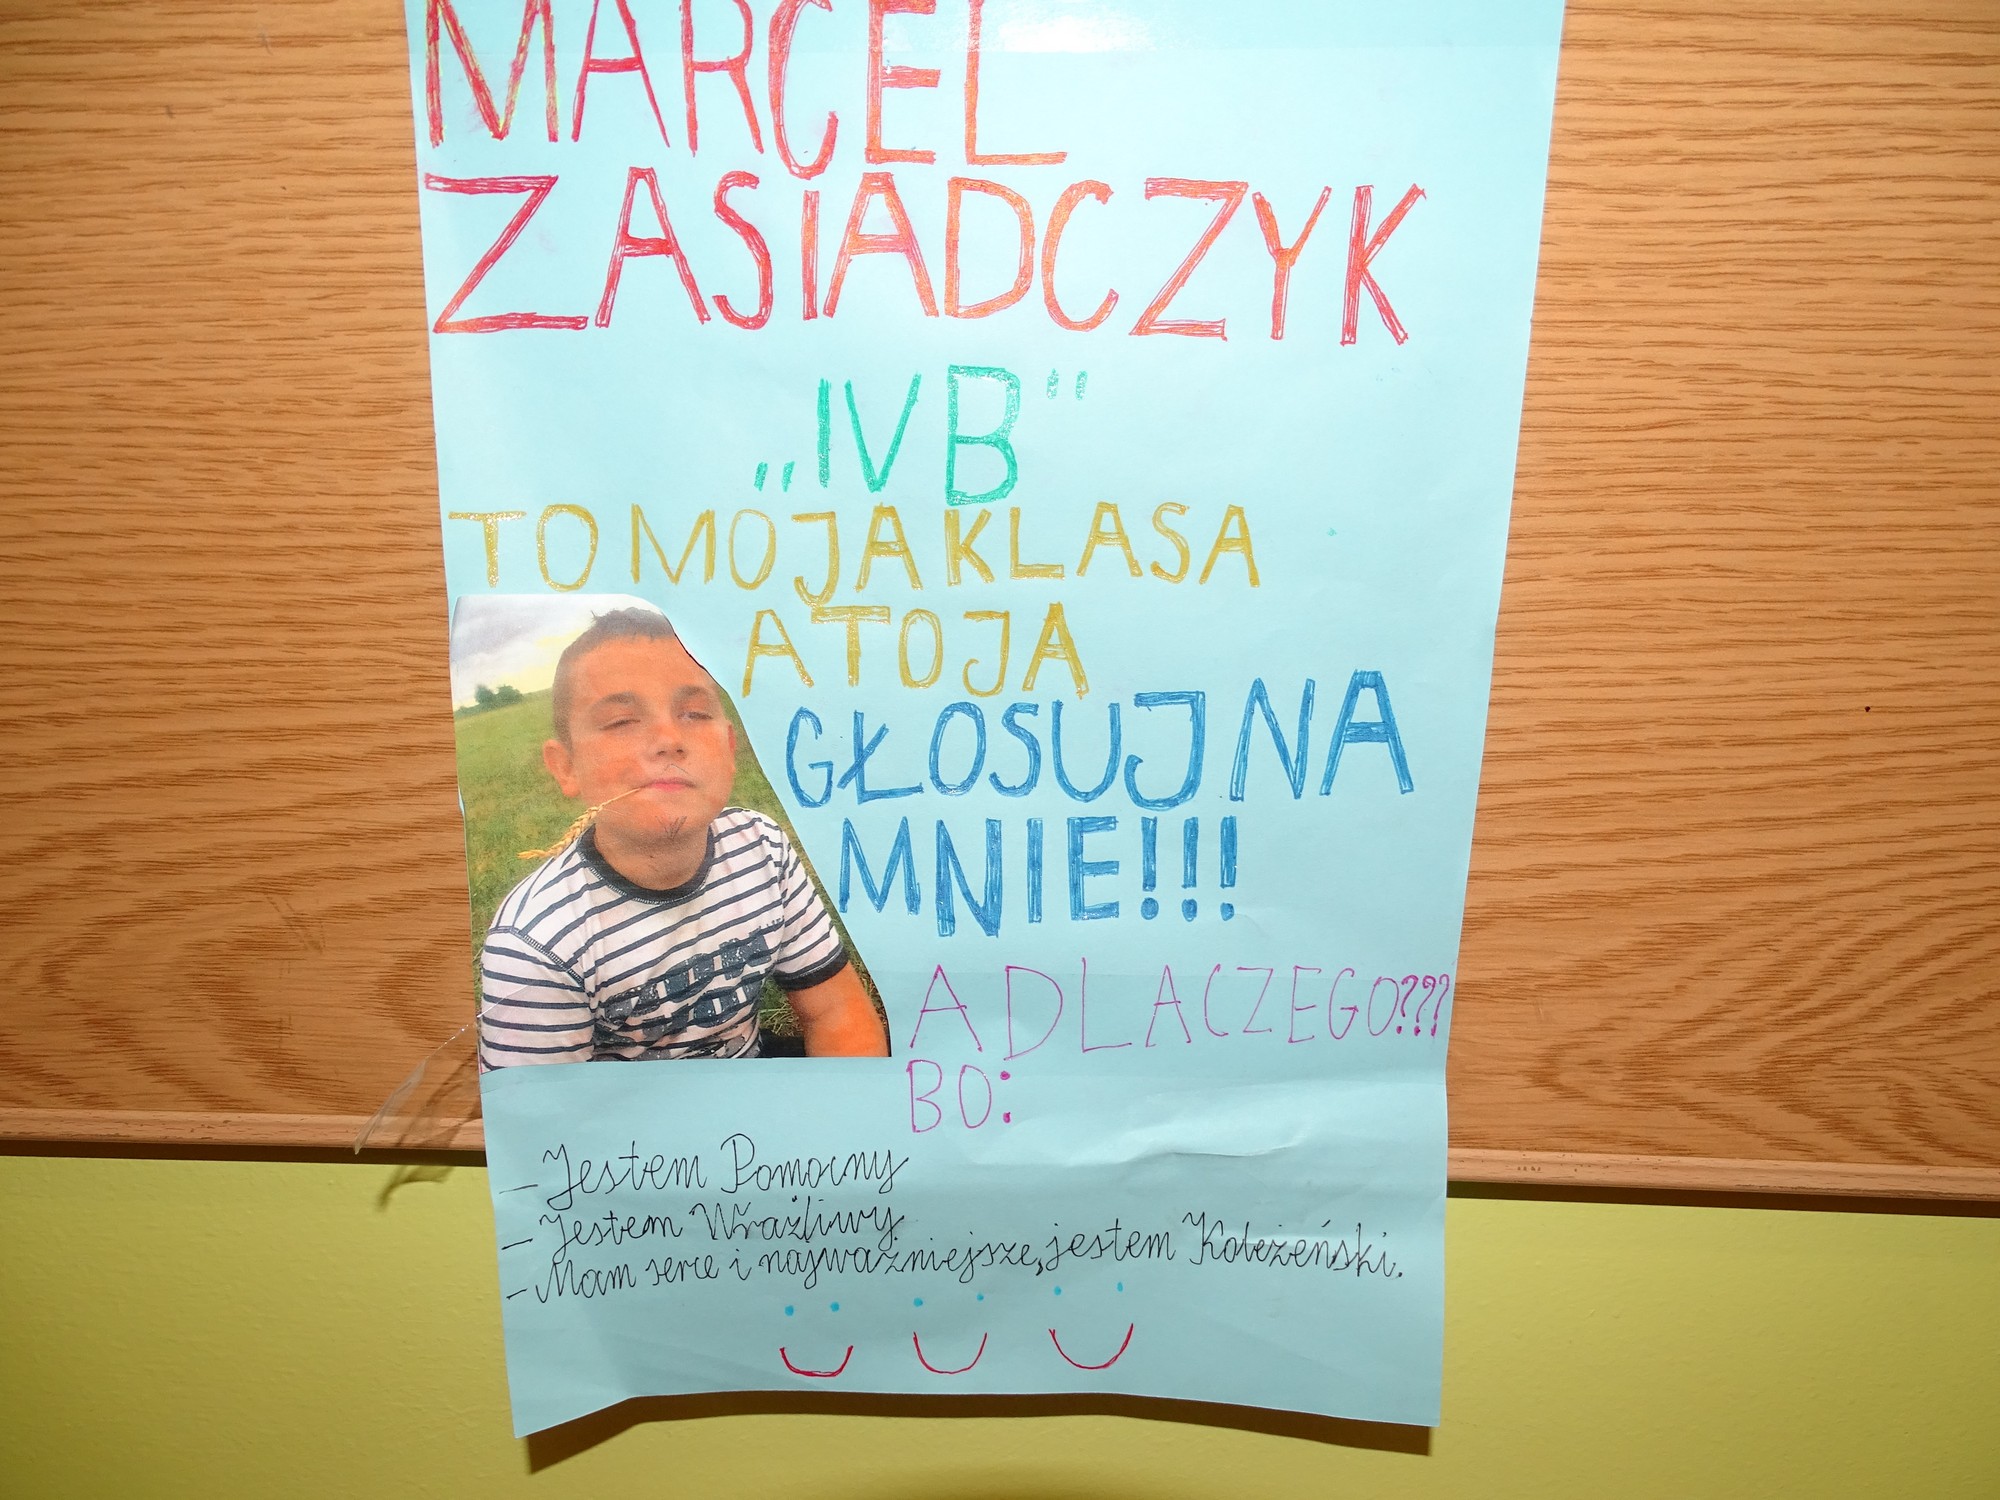 MARCEL
ZASIADCZYK
„IV B"
TO MOJA KLASA
A TO JA
GŁOSUJ NA
MNIE!!!
A DLACZEGO???
BO:
- Jestem Pomocny
- Jestem Wrażliwy
- Mam serce i najważniejsze, jestem Koleżeński.